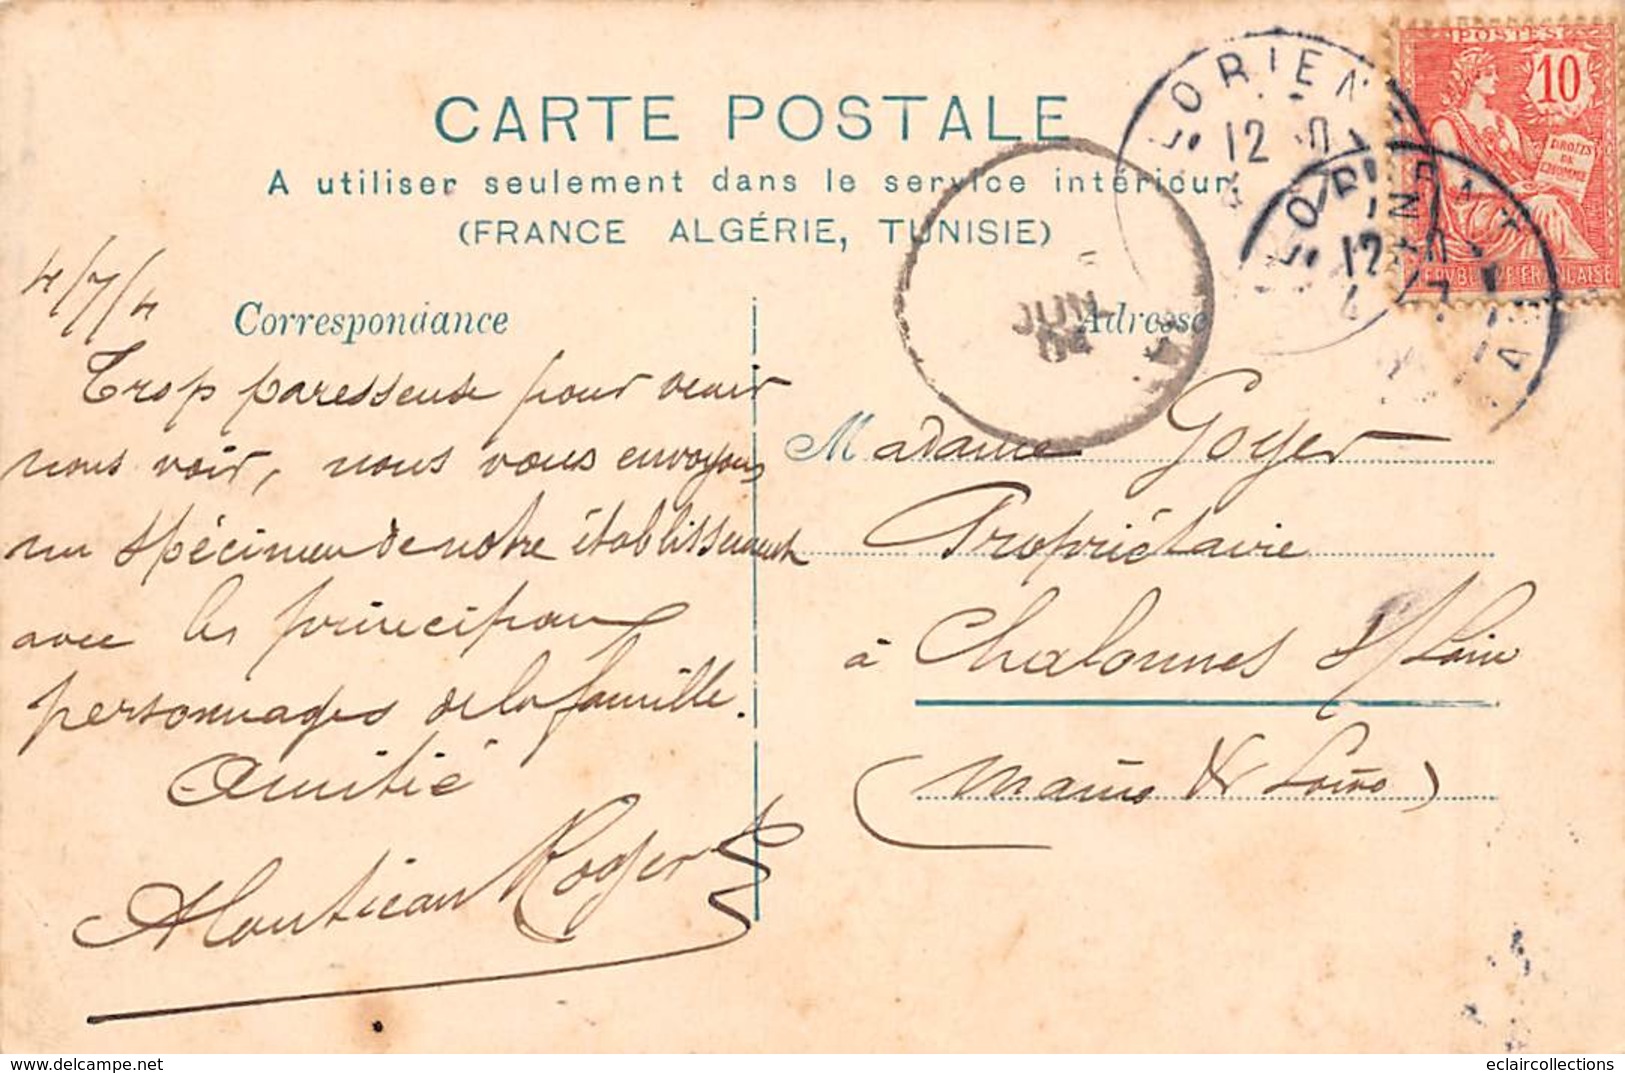 CARTE POSTALE
A utiliser seulement dans le service intérieur
(FRANCE ALGÉRIE, TUNISIE)
POSTES
10
DROITS DE L'HOMME
REPUBLIQUE FRANÇAISE
LORIENT
12
LORIENT
12
4/7/4
Correspondance
Adresse
Trop paresseuse pour venir
nous voir, nous vous envoyons
un spécimen de notre établissement
avec les principaux
personnages de la famille.
Amitié
Roger
Madame Goyer
Propriétaire
à Chalonnes s/ Loire
(Maine & Loire)
eclaircollections
www.delcampe.net